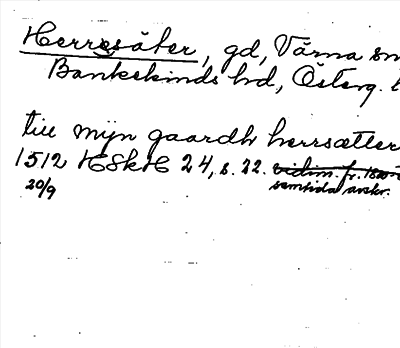 Herresäter, gd, Värna sn
Bankekinds hd, Österg. l
till mijn gaardh herrsætter
1512 HSkH 24, s. 22. vidim. fr. 1500-t
20/9 samtida avskr.